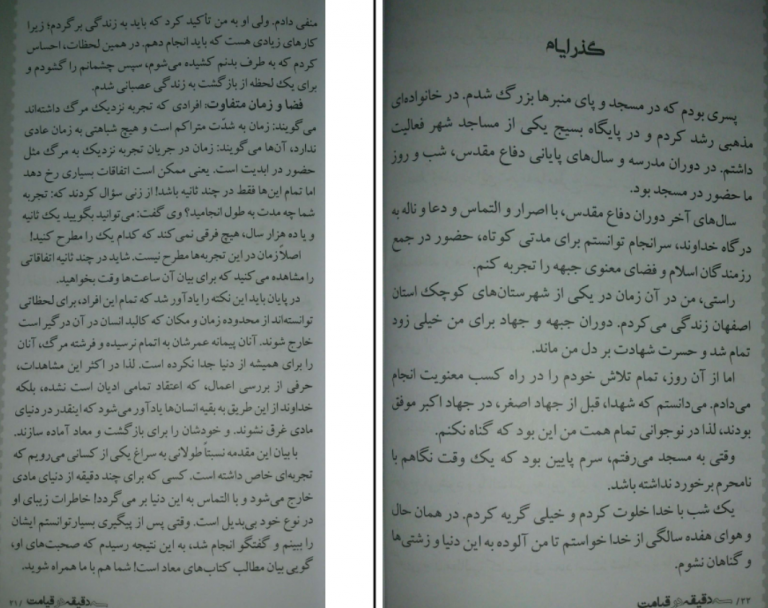 گذر ایام
پسری بودم که در مسجد و پای منبرها بزرگ شدم. در خانواده‌ای
مذهبی رشد کردم و در پایگاه بسیج یکی از مساجد شهر فعالیت
داشتم. در دوران مدرسه و سال‌های پایانی دفاع مقدس، شب و روز
ما حضور در مسجد بود.
سال‌های آخر دوران دفاع مقدس، با اصرار و التماس و دعا و ناله به
درگاه خداوند، سرانجام توانستم برای مدتی کوتاه، حضور در جمع
رزمندگان اسلام و فضای معنوی جبهه را تجربه کنم.
راستی، من در آن زمان در یکی از شهرستان‌های کوچک استان
اصفهان زندگی می‌کردم. دوران جبهه و جهاد برای من خیلی زود
تمام شد و حسرت شهادت بر دل من ماند.
اما از آن روز، تمام تلاش خودم را در راه کسب معنویت انجام
می‌دادم. می‌دانستم که شهدا، قبل از جهاد اصغر، در جهاد اکبر موفق
بودند، لذا در نوجوانی تمام همت من این بود که گناه نکنم.
وقتی به مسجد می‌رفتم، سرم پایین بود که یک وقت نگاهم با
نامحرم برخورد نداشته باشد.
یک شب با خدا خلوت کردم و خیلی گریه کردم. در همان حال
و هوای هفده سالگی از خدا خواستم تا من آلوده به این دنیا و زشتی‌ها
و گناهان نشوم.
۲۲/ سه دقیقه در قیامت
منفی دادم. ولی او به من تأکید کرد که باید به زندگی برگردم؛ زیرا
کارهای زیادی هست که باید انجام دهم. در همین لحظات، احساس
کردم که به طرف بدنم کشیده می‌شوم، سپس چشمانم را گشودم و
برای یک لحظه از بازگشت به زندگی عصبانی شدم.
فضا و زمان متفاوت: افرادی که تجربه نزدیک مرگ داشته‌اند
می‌گویند: زمان به شدّت متراکم است و هیچ شباهتی به زمان عادی
ندارد، آن‌ها می‌گویند: زمان در جریان تجربه نزدیک به مرگ مثل
حضور در ابدیت است. یعنی ممکن است اتفاقات بسیاری رخ دهد
اما تمام این‌ها فقط در چند ثانیه باشد! از زنی سؤال کردند که: تجربه
شما چه مدت به طول انجامید؟ وی گفت: می‌توانید بگویید یک ثانیه
و یا ده هزار سال، هیچ فرقی نمی‌کند که کدام یک را مطرح کنید!
اصلاً زمان در این تجربه‌ها مطرح نیست. شاید در چند ثانیه اتفاقاتی
را مشاهده می‌کنید که برای بیان آن ساعت‌ها وقت بخواهید.
در پایان باید این نکته را یادآور شد که تمام این افراد، برای لحظاتی
توانسته‌اند از محدوده زمان و مکان که کالبد انسان در آن درگیر است
خارج شوند. آنان پیمانه عمرشان به اتمام نرسیده و فرشته مرگ، آنان
را برای همیشه از دنیا جدا نکرده است. لذا در اکثر این مشاهدات،
حرفی از بررسی اعمال، که اعتقاد تمامی ادیان است نشده، بلکه
خداوند از این طریق به بقیه انسان‌ها یادآور می‌شود که اینقدر در دنیای
مادی غرق نشوند. و خودشان را برای بازگشت و معاد آماده سازند.
با بیان این مقدمه نسبتاً طولانی به سراغ یکی از کسانی می‌رویم که
تجربه‌ای خاص داشته است. کسی که برای چند دقیقه از دنیای مادی
خارج می‌شود و با التماس به این دنیا بر می‌گردد! خاطرات زیبای او
در نوع خود بی‌بدیل است. وقتی پس از پیگیری بسیار توانستم ایشان
را ببینم و گفتگو انجام شد، به این نتیجه رسیدم که صحبت‌های او،
گویی بیان مطالب کتاب‌های معاد است! شما هم با ما همراه شوید.
سه دقیقه در قیامت /۲۱